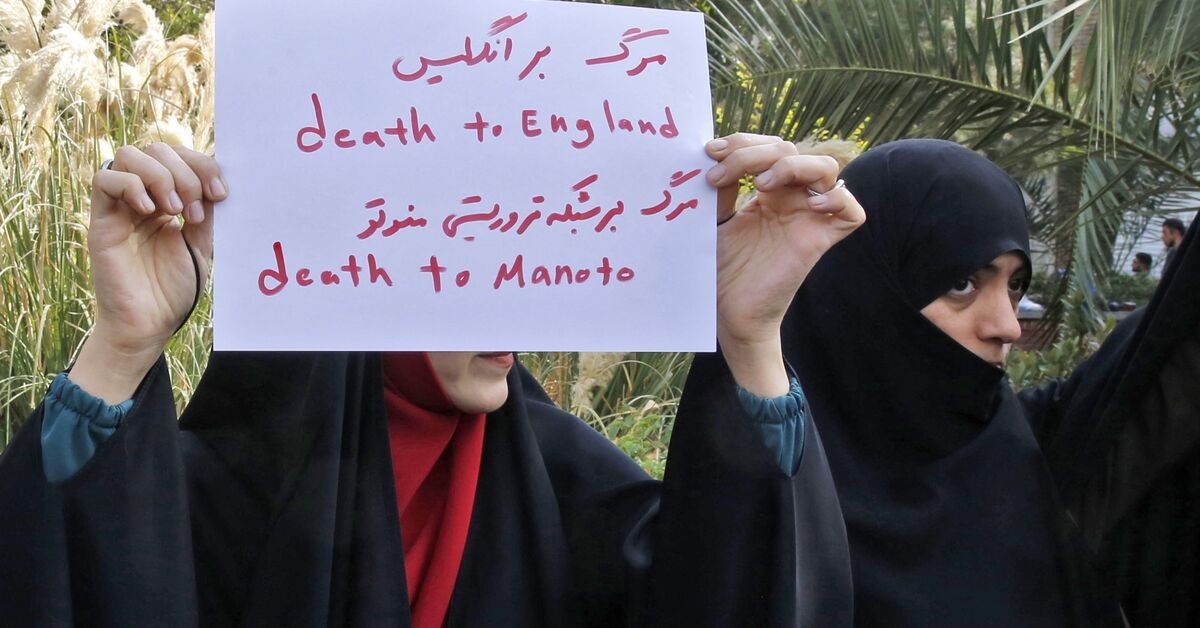 مرگ بر انگلیس
death to England
مرگ بر شبکه تروریستی منوتو
death to Manoto